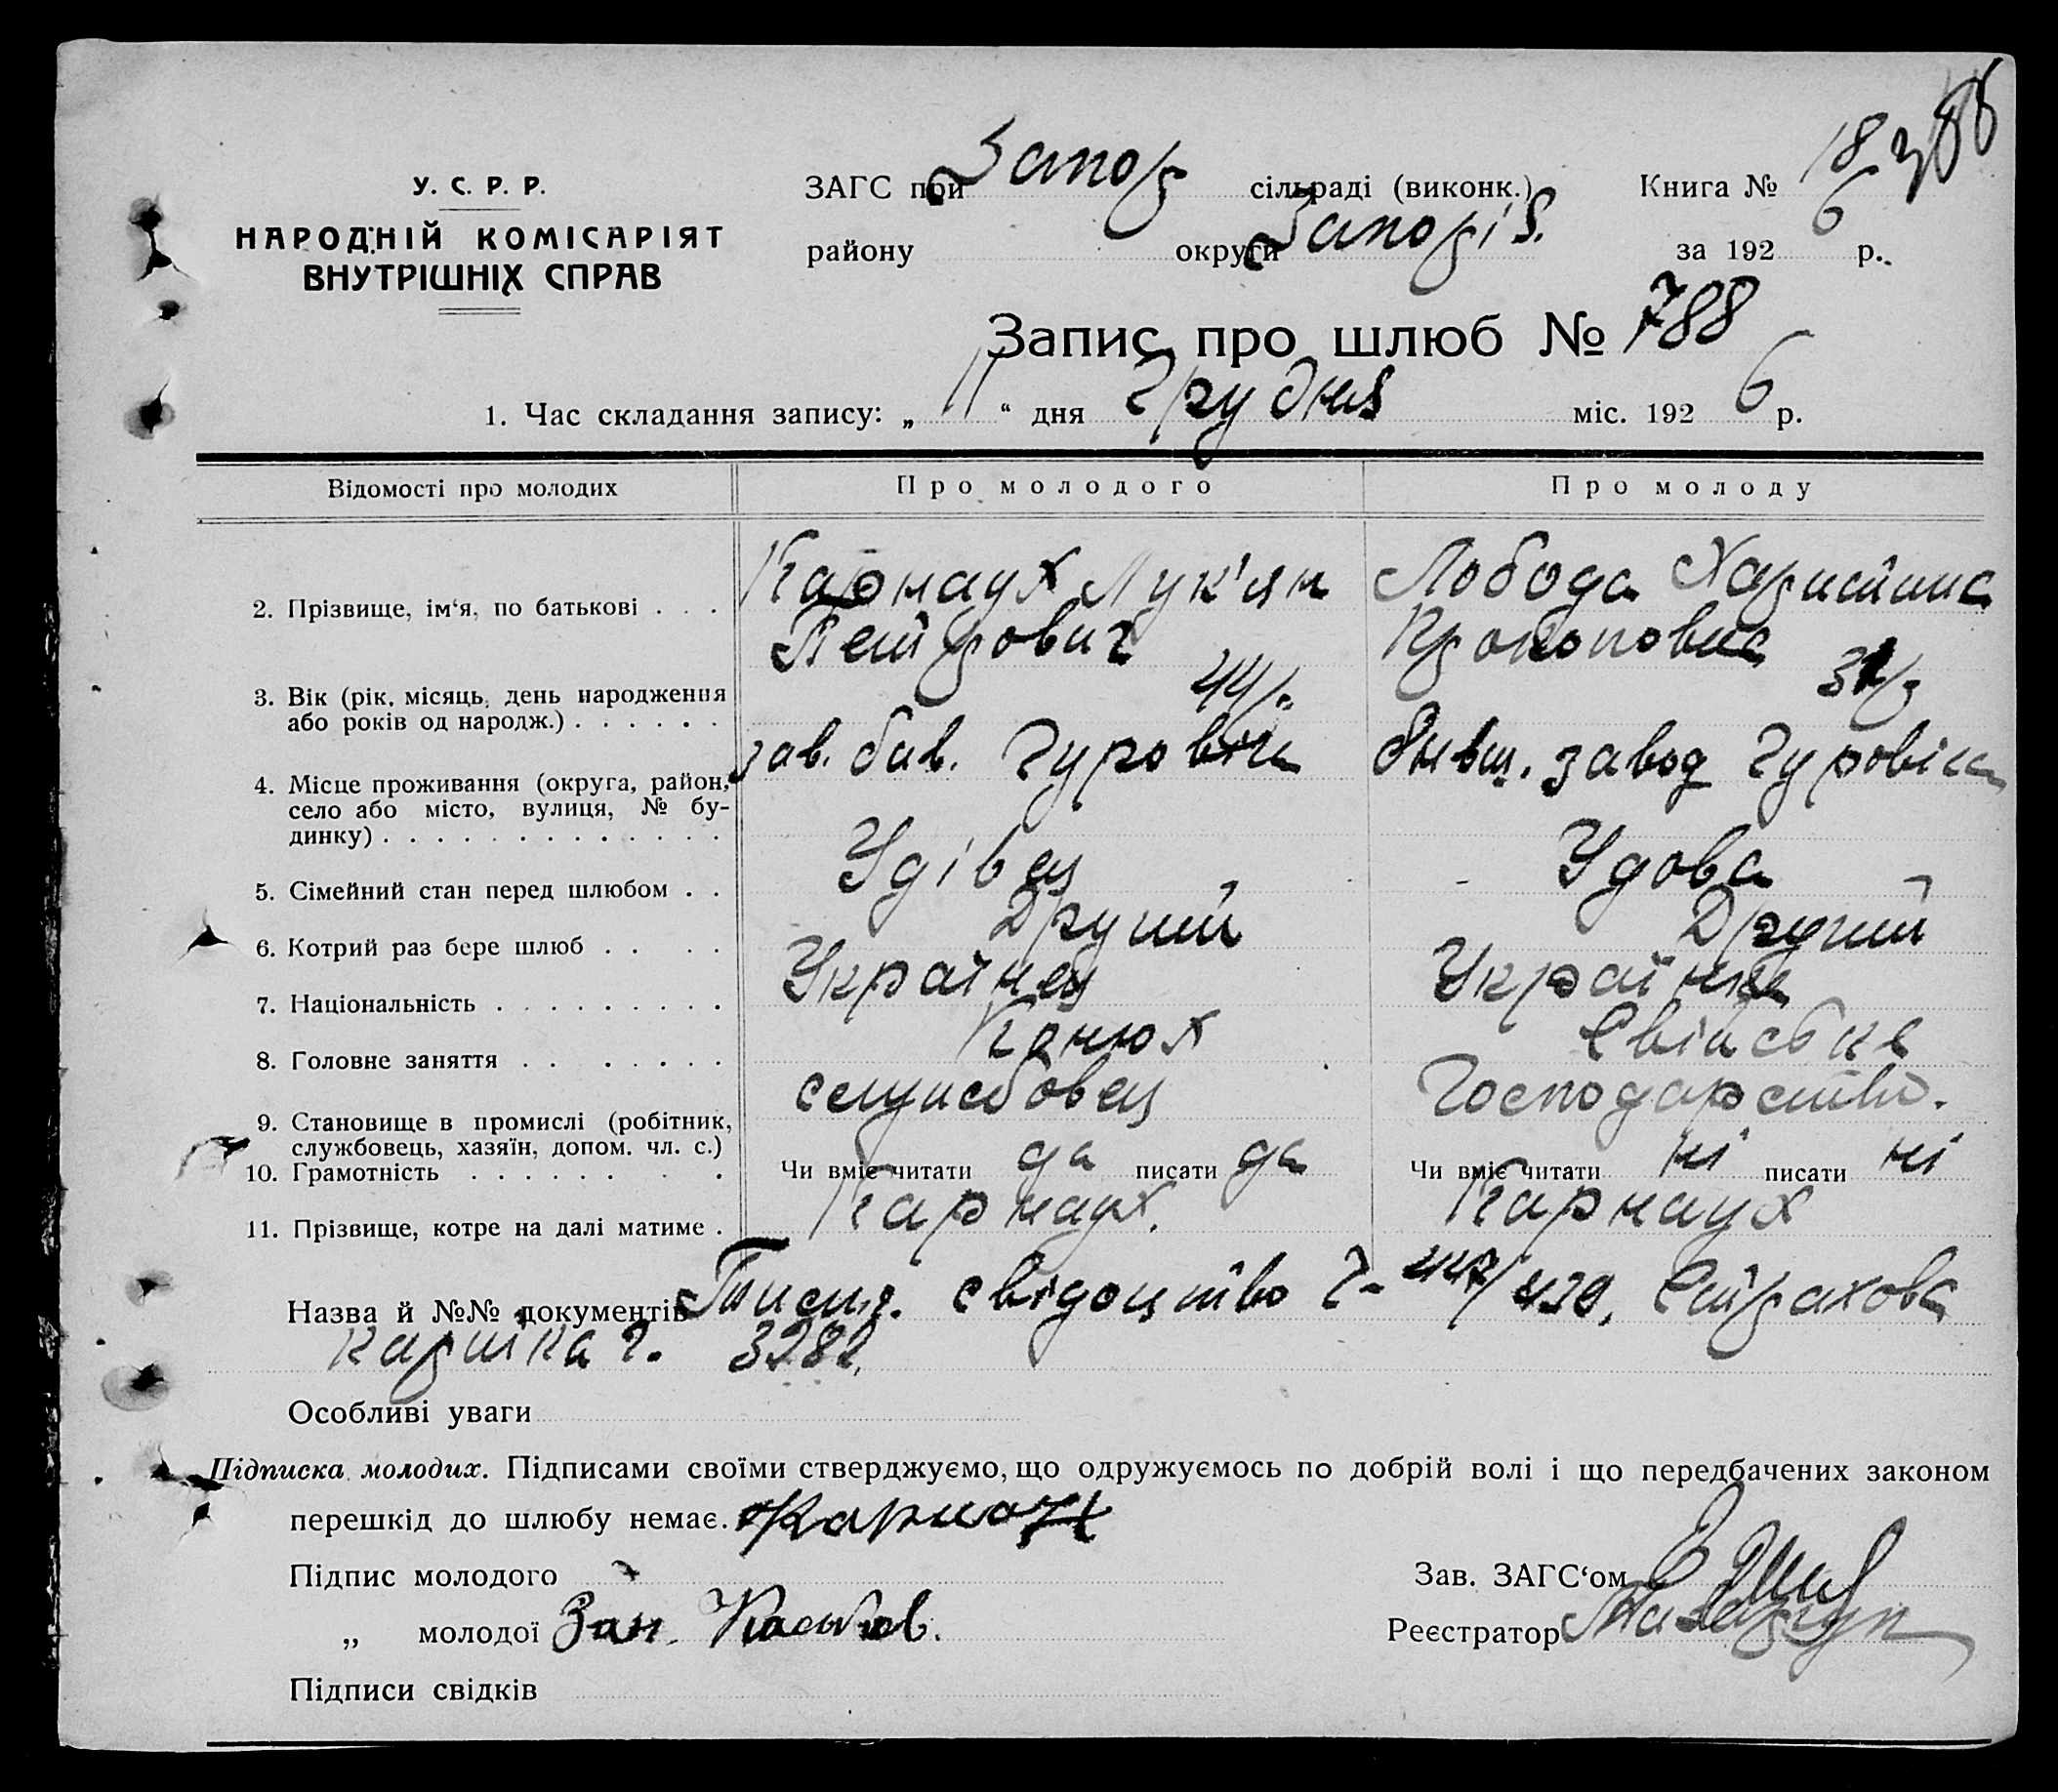 У. С. Р. Р.
НАРОДНІЙ КОМІСАРІЯТ
ВНУТРІШНІХ СПРАВ
ЗАГС при Запор сільраді (виконк.) Книга № 18
району округи Запоріз. за 192 6 р.
Запис про шлюб № 788
1. Час складання запису: „ 11 “ дня Грудня міс. 192 6 р.
Відомості про молодих Про молодого Про молоду
2. Прізвище, ім‘я, по батькові . . . Карнаух Лук'ян Лобода Харитина
Петрович Прокоповна
3. Вік (рік, місяць, день народження 44 р. 31 р.
або років од народж.) . . . . . .
4. Місце проживання (округа, район, зав. бив. Гуровіча бывш. завод Гуровіча
село або місто, вулиця, № бу-
динку) . . . . . . . . . . . . .
5. Сімейний стан перед шлюбом . . Удівец Удова
6. Котрий раз бере шлюб . . . . Другий Другий
7. Національність . . . . . . . . . Українец Українка
8. Головне заняття . . . . . . . Конюх Свійське
9. Становище в промислі (робітник, службовец Господарство.
службовець, хазяїн, допом. чл. с.)
10. Грамотність . . . . . . . . Чи вміє читати да писати да Чи вміє читати ні писати ні
11. Прізвище, котре на далі матиме . Карнаух. Карнаух
Назва й №№ документів свідоцтво Страхова
картка ч. 3282.
Особливі уваги
Підписка молодих. Підписами своїми стверджуємо, що одружуємось по добрій волі і що передбачених законом
перешкід до шлюбу немає.
Підпис молодого Зав. ЗАГС‘ом
„ молодої Реєстратор
Підписи свідків